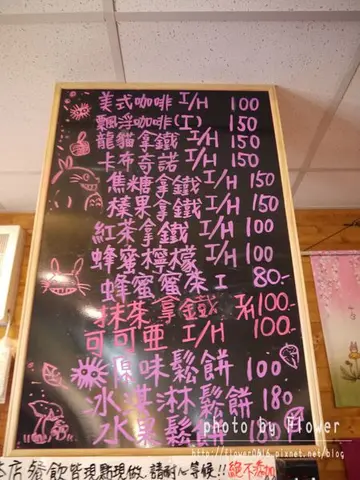 美式咖啡 I/H 100
飄浮咖啡(I) 150
龍貓拿鐵 I/H 150
卡布奇諾 I/H 150
焦糖拿鐵 I/H 150
榛果拿鐵 I/H 150
紅茶拿鐵 I/H 100
蜂蜜檸檬 I/H 100
蜂蜜蜜茶 I 80.-
抹茶拿鐵 I/H 100.-
可可亞 I/H 100.-
原味鬆餅 100
冰淇淋鬆餅 180
水果鬆餅 180
本店餐飲皆現點現做,請耐心等候!!絕不添加
photo by Flower
http://flower0616.pixnet.net/blog